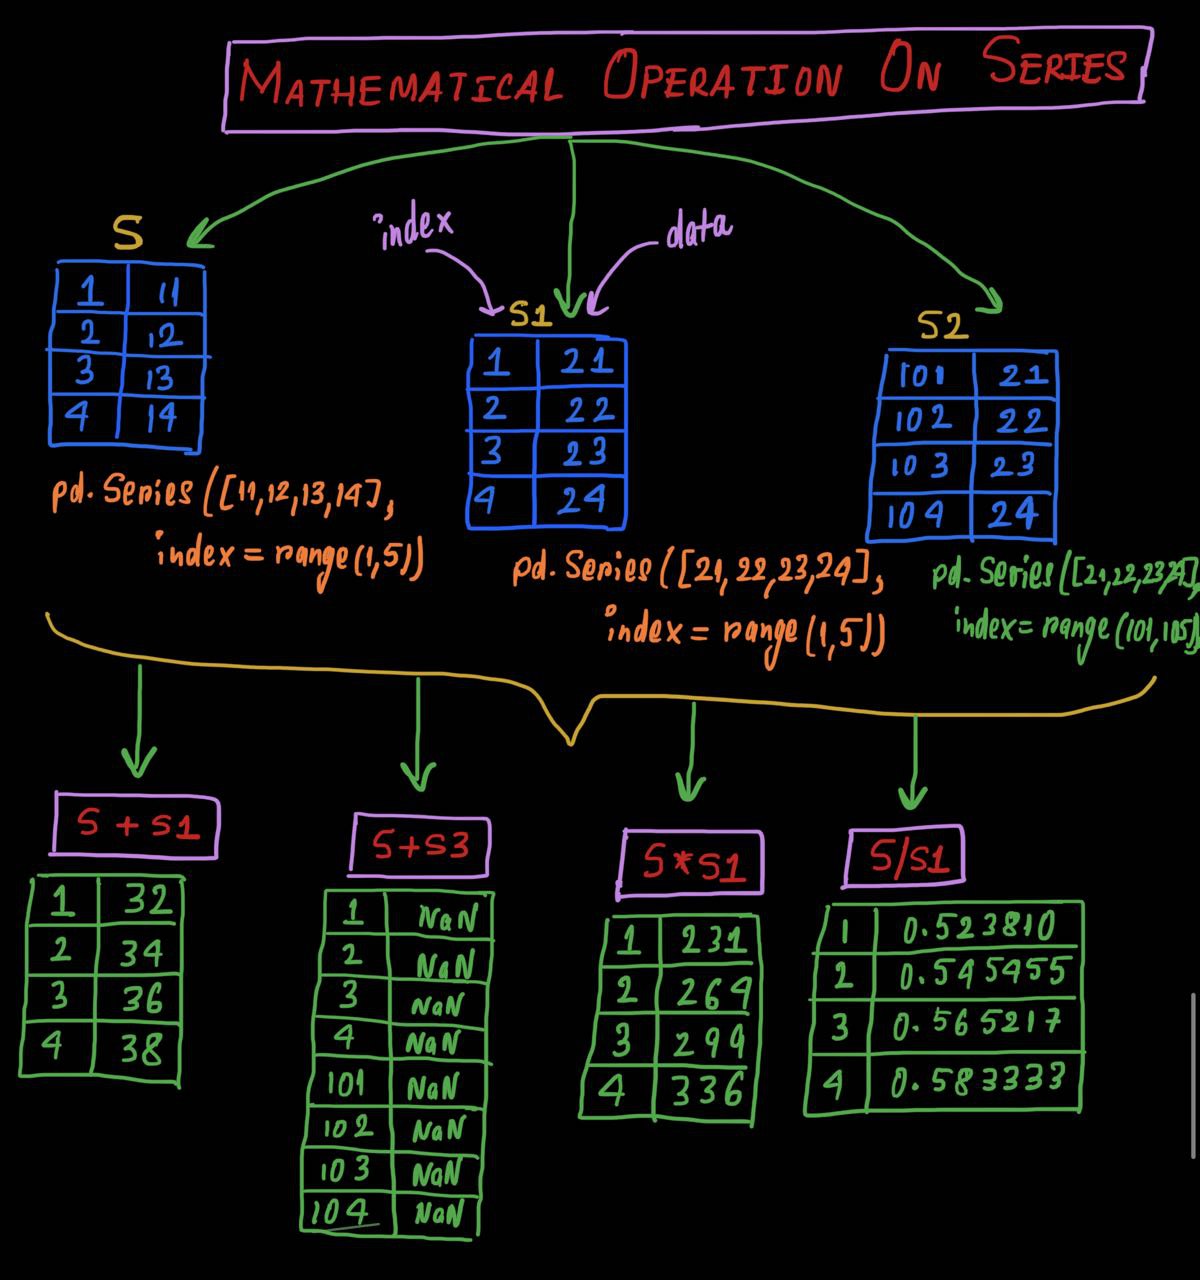 MATHEMATICAL OPERATION ON SERIES
index
data
S
1 11
2 12
3 13
4 14
pd. Series ([11,12,13,14],
index = range(1,5))
S1
1 21
2 22
3 23
4 24
pd. Series ([21, 22,23,24],
index = range(1,5))
S2
101 21
102 22
103 23
104 24
pd. Series ([21,22,23,24],
index= range (101,105))
S + S1
1 32
2 34
3 36
4 38
S+S3
1 NaN
2 NaN
3 NaN
4 NaN
101 NaN
102 NaN
103 NaN
104 NaN
S*S1
1 231
2 264
3 299
4 336
S/S1
1 0.523810
2 0.545455
3 0.565217
4 0.583333